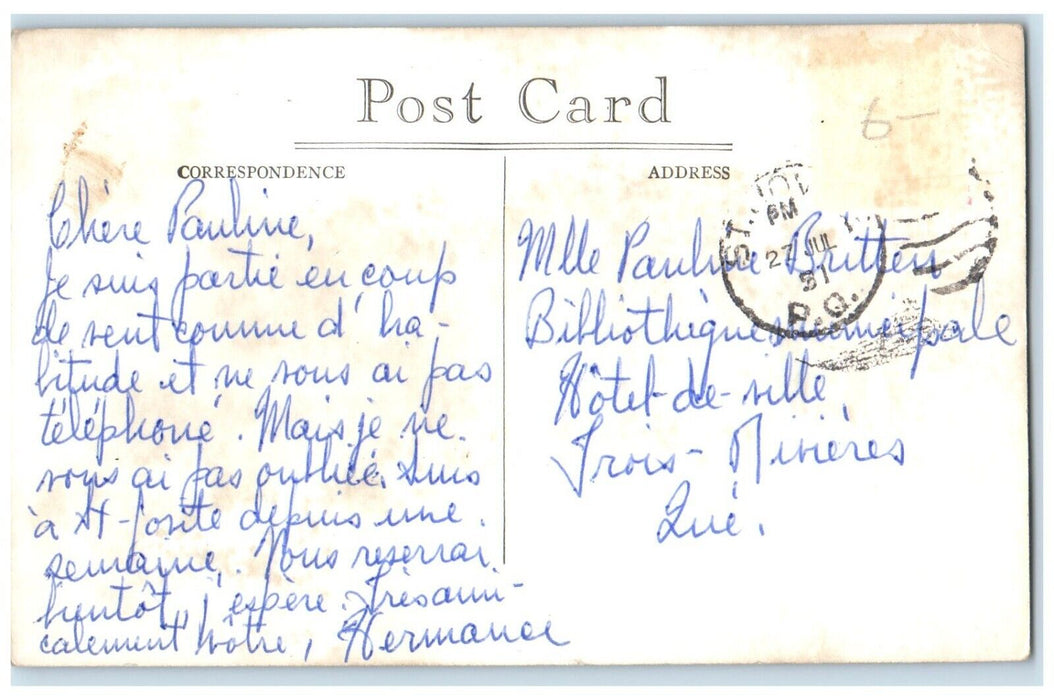 6-
Post Card
CORRESPONDENCE
ADDRESS
PM
27 JUL
51
P.Q.
Chère Pauline,
Je suis partie en coup
de vent comme d'ha-
bitude et ne vous ai pas
téléphoné. Mais je ne
vous ai pas oubliée. Suis
à St-Jovite depuis une
semaine. Vous reverrai
bientôt, j'espère. Très ami-
calement vôtre, Hermance
Mlle Pauline Britten
Bibliothèque municipale
Hôtel-de-ville,
Trois-Rivières
Qué.